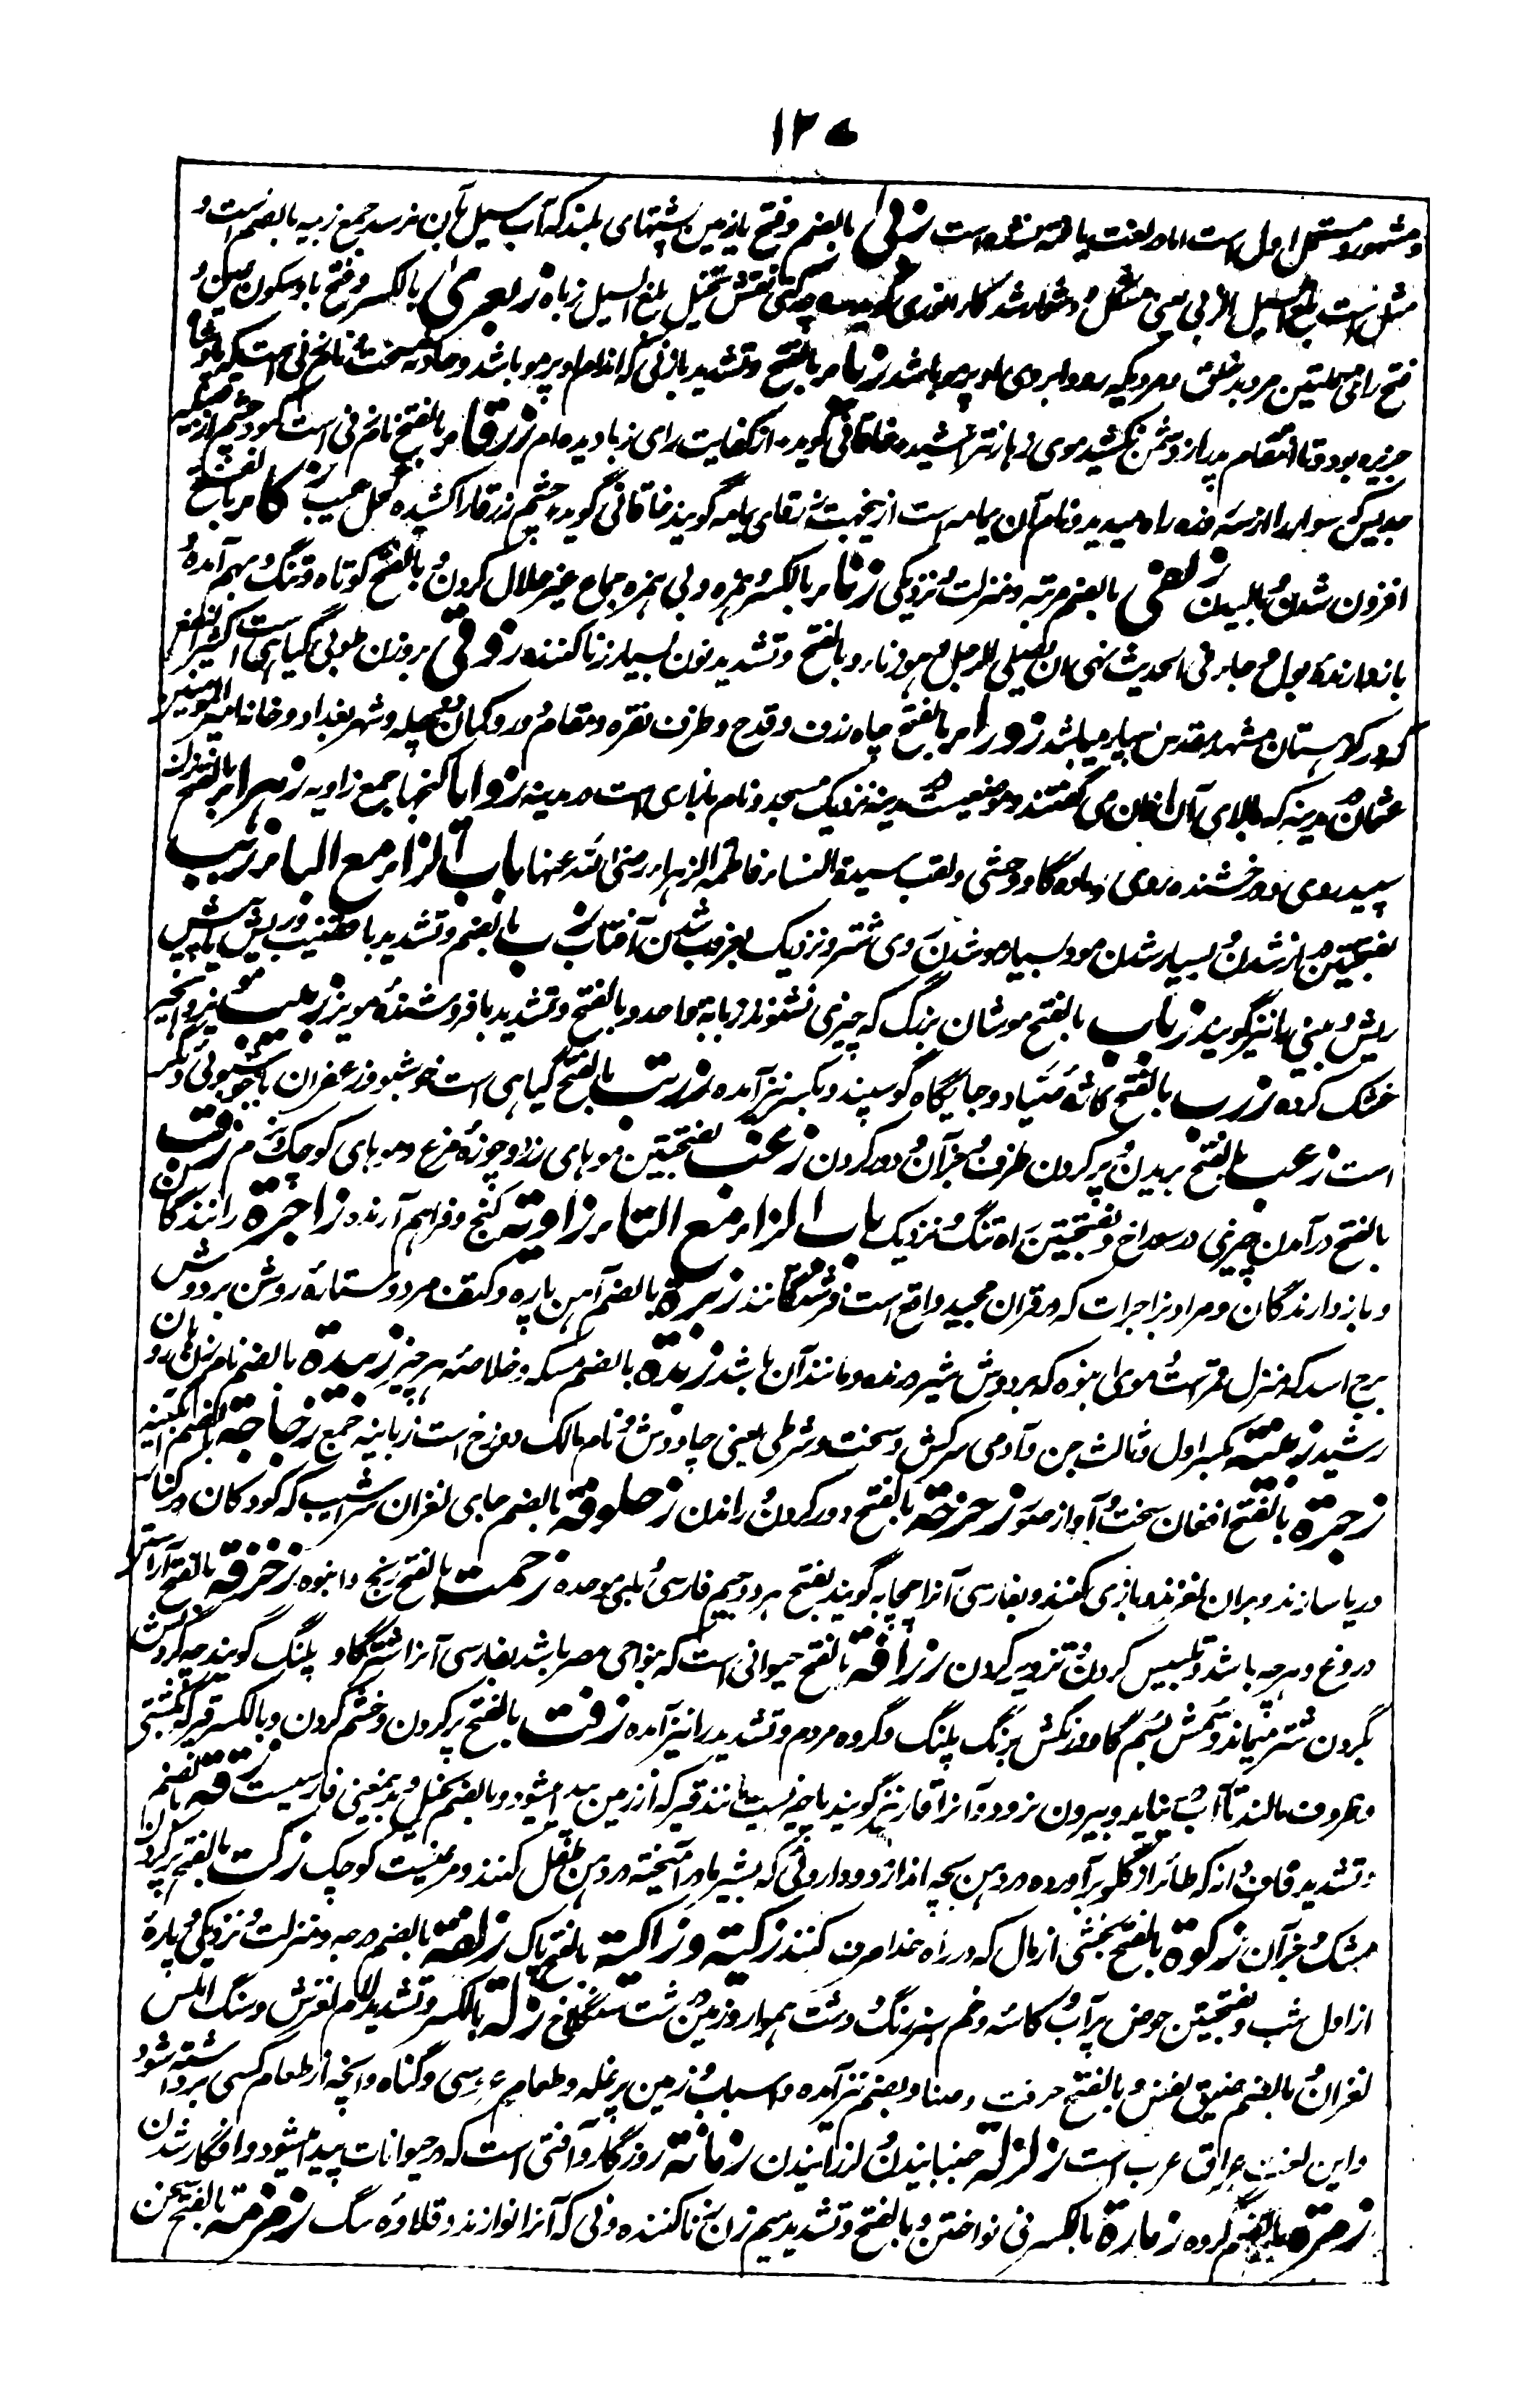 ١٢٥
و مشهور و مستعمل اول است اما در لغت یافته نشده است زبی بالضم و فتح با زمین پشتهای بلند که آب سیل بآن نرسد جمع زبیه بالضم است و
مثل است بلغ السیل الزبی یعنی مشکل و دشوار شد کار انوری گوید چه کنی نقش تخیل بلغ السیل زباه زبعری بالکسر و فتح با و سکون عین و
فتح رای مهملتین مرد بدخلق و مردیکه رو و ابروی او پرمو باشد زبا مر بالفتح و تشدید با زنی که اندام او پرمو باشد و حادثه سخت و نام زنی است که پادشاه
جزیره بود و تا انتقام پدر از دشمن نکشید موی زهار نتراشید خاقانی گوید از کفایت رای زبا دیده ام زرقا مر بالفتح نام زنی است کبود چشم از قبیله
جدیس که سوار را از سه روزه راه میدید و نام آن یمامه است ازینجهت زرقای یمامه گویند خاقانی گوید چشم زرقا را کشیده کحل عیب زکا مر بالفتح
افزون شدن و بالیدن زلفی بالضم مرتبه و منزلت و نزدیکی زنا مر بالکسر و همزه و بی همزه جماع غیر حلال کردن و بالفتح کوتاه و تنگ و بهم آمده و
باز دارنده بول جاء فی الحدیث نهی ان یصلی الرجل و هو زناء و بالفتح و تشدید نون بسیار زنا کننده زوفی بر وزن طوبی گیاهی است کثیر النفع
که در کوهستان مشهد مقدس بسیار میباشد زورا مر بالفتح چاه ژرف و قدح و ظرف نقره و مقام و رو کمان و دجله و شهر بغداد و خانه امیر المومنین
عثمان در مدینه که بالای آن اذان می گفتند و موضعیست در مدینه نزدیک مسجد و نام بازاری است در مدینه زوایا کنجها جمع زاویه زهرا مر بالفتح زن
سپید روی و درخشنده روی و ماده گاو وحشی و لقب سیدة النساء فاطمه الزهراء رضی الله عنها باب الزاء مع الباء زبب
بفتحتین دراز شدن و بسیار شدن مو و بسیار مو شدن روی شتر و نزدیک بغروب شدن آفتاب زب بالضم و تشدید با قضیب و ریش یا پیش
ریش و بینی را نیز گویند زباب بالفتح موشان بزرگ که چیزی نشنوند زبابه واحد و بالفتح و تشدید با فروشنده مویز زبیب مویز و انجیر
خشک کرده زرب بالفتح کازه صیاد و جایگاه گوسپند و بکسر نیز آمده زرنب بالفتح گیاهی است خوشبو و زعفران یا خوشبوئی دیگر
است زعب بالفتح بریدن و پر کردن ظرف و جز آن و دور کردن زغب بفتحتین موهای زرد چوزه مرغ و موهای کوچک نرم زقب
بالفتح در آمدن چیزی در سوراخ و بفتحتین راه تنگ و نزدیک باب الزاء مع التاء زاویة کنج و فراهم آرنده زاجرة رانندگان
و باز دارندگان و مراد بزاجرات که در قران مجید واقع است فرشتگانند زبرة بالضم آهن پاره و کتف مرد و ستاره روشن بر دوش
برج اسد که منزل قمرست و موی انبوه که بر دوش شیر درنده و مانند آن باشد زبدة بالضم مسکه و خلاصه هر چیز زبیدة بالضم نام زن هارون
رشید زبنیة بکسر اول و ثالث جن و آدمی سرکش و سخت و شرطی یعنی چاووش و نام مالک دوزخ است زبانیه جمع زجاجة بالضم آبگینه
زجرة بالفتح افغان سخت و آواز صور زحزحة بالفتح دور کردن و راندن زحلوفة بالضم جای لغزان سراشیب که کودکان در کنار
دریا سازند و بران لغزند و بازی کنند و بفارسی آنرا چچابه گویند بفتح هر دو جیم فارسی و بای موحده زحمت بالفتح رنج و انبوه زخرفة بالفتح آراستن
دروغ و هرچه باشد و تلبیس کردن و تزویر کردن زرافة بالفتح حیوانی است که بنواحی مصر باشد بفارسی آنرا شترگاو پلنگ گویند چه گردنش
بگردن شتر میماند و سمش بسم گاو و رنگش برنگ پلنگ و گروه مردم و تشدید را نیز آمده زفت بالفتح پر کردن و خشم کردن و بالکسر قیر که بکشتی
و ظروف مالند تا آب نیاید و بیرون نرود و آنرا قار نیز گویند یا چیزیست مانند قیر که از زمین پیدا میشود و بالضم بخیل و بدینمعنی فارسیست زقة بالضم
و تشدید قاف دانه که طائر از گلو برآورده در دهن بچه اندازد و داروئی که بشیر مادر آمیخته در دهن طفل کنند و مرغیست کوچک زکت بالفتح پر کردن
مشک و جز آن زکوة بالفتح بخشی از مال که در راه خدا صرف کنند زکیة و زاکیة بالفتح پاک زلفة بالضم درجه و منزلت و نزدیکی و پاره
از اول شب و بفتحتین حوض پر آب و کاسه و خم سبز رنگ و دشت هموار و زمین درشت سنگلاخ زلة بالکسر و تشدید لام لغزش و سنگ املس
لغزان و بالضم ضیق نفس و بالفتح حرفت و صناعت و بضم نیز آمده و اسباب و زمین پر غله و طعام عروسی و گناه و آنچه از طعام کسی برداشته شود
و این لغت عراق عرب است زلزلة جنبانیدن و لرزانیدن زمانة روزگار و آفتی است که در حیوانات پیدا میشود و افگار شدن
زمرة بالضم گروه زمارة بالکسر نی نواختن و بالفتح و تشدید میم زن زنا کننده و نی که آنرا نوازند و قلاده سگ زمزمة بالفتح سخن